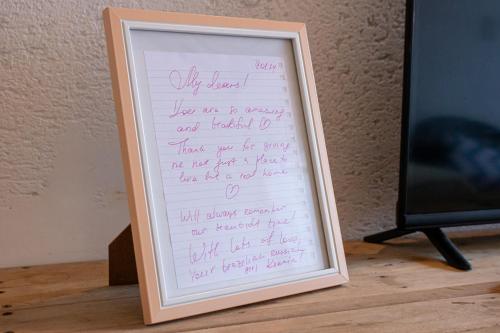 My dears!
You are so amazing
and beautiful ♡
Thank you for giving
me not just a place to
live but a real home
♡
Will always remember
our beautiful time!
With lots of love,
your brazilian russian
girl